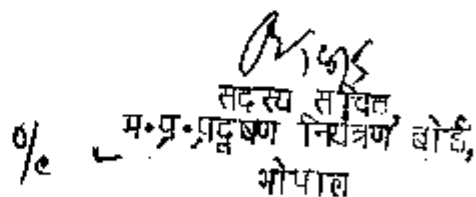 सदस्य सचिव,
म.प्र. प्रदूषण नियंत्रण बोर्ड,
भोपाल